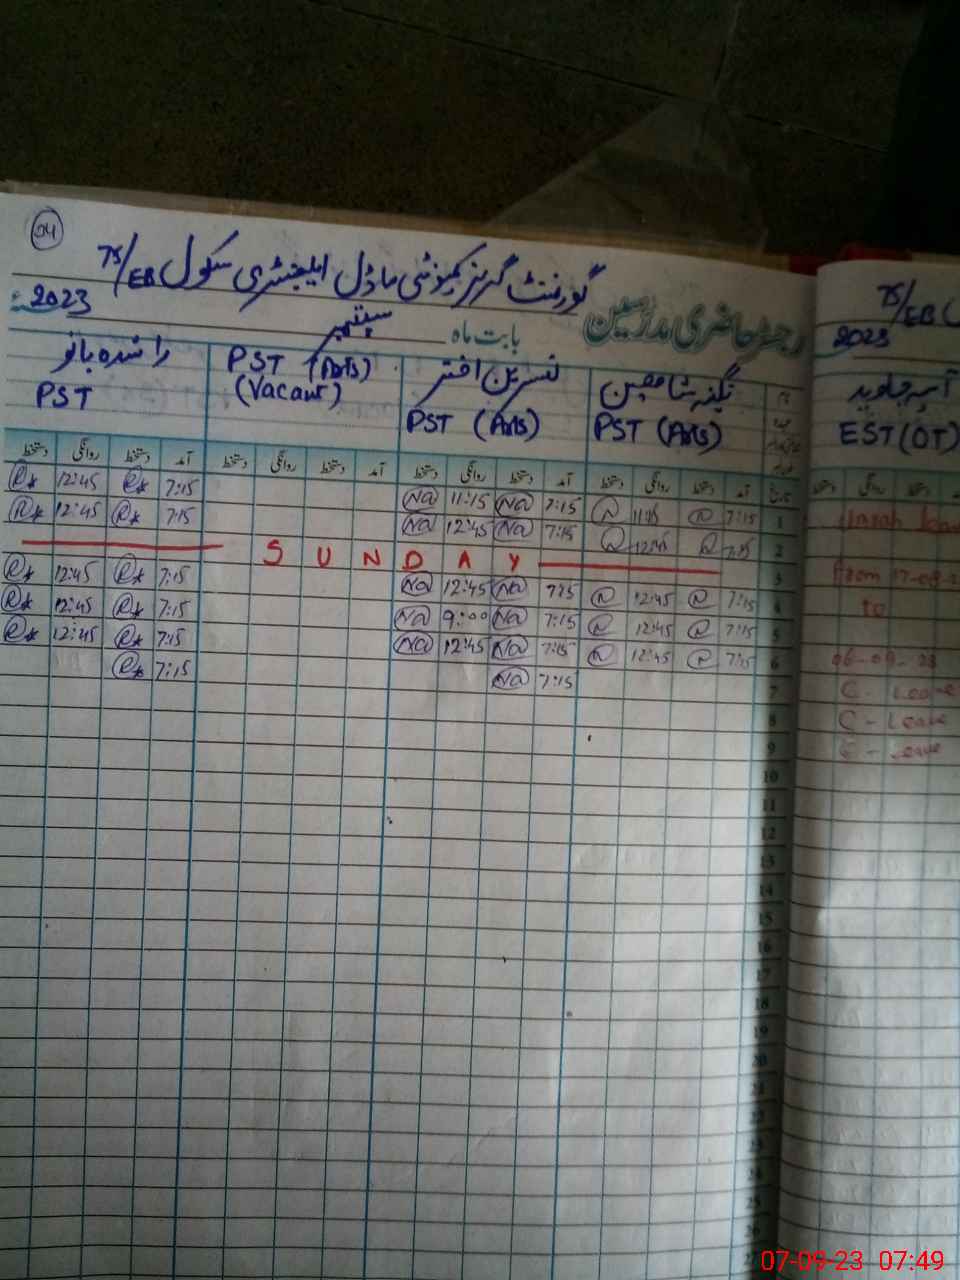 04
گورنمنٹ گرلز کمیونٹی ماڈل ایلیمنٹری سکول 75/EB
رجسٹر حاضری مدرسین بابت ماہ ستمبر 2023
نسرین اختر راشدہ بانو
PST (Arts) PST (Arts) PST (Arts) (Vacant) PST
تاریخ آمد دستخط روانگی دستخط آمد دستخط روانگی دستخط آمد دستخط روانگی دستخط آمد دستخط روانگی دستخط
1 7:15 11:15 7:15 Na 11:15 Na 7:15 R* 12:45 R*
2 7:15 12:45 7:15 Na 12:45 Na 7:15 R* 12:45 R*
3 SUNDAY
4 7:15 12:45 7:15 Na 12:45 Na 7:15 R* 12:45 R*
5 7:15 12:45 7:15 Na 9:00 Na 7:15 R* 12:45 R*
6 7:15 12:45 7:15 Na 12:45 Na 7:15 R* 12:45 R*
7 7:15 Na 7:15 R*
8
9
10
11
12
13
14
15
16
17
18
19
20
75/EB
2023
آسیہ جاوید
EST (OT)
روانگی دستخط
from 17-08-2
to
06-09-23
C - Leave
C - Leave
C - Leave
07-09-23 07:49